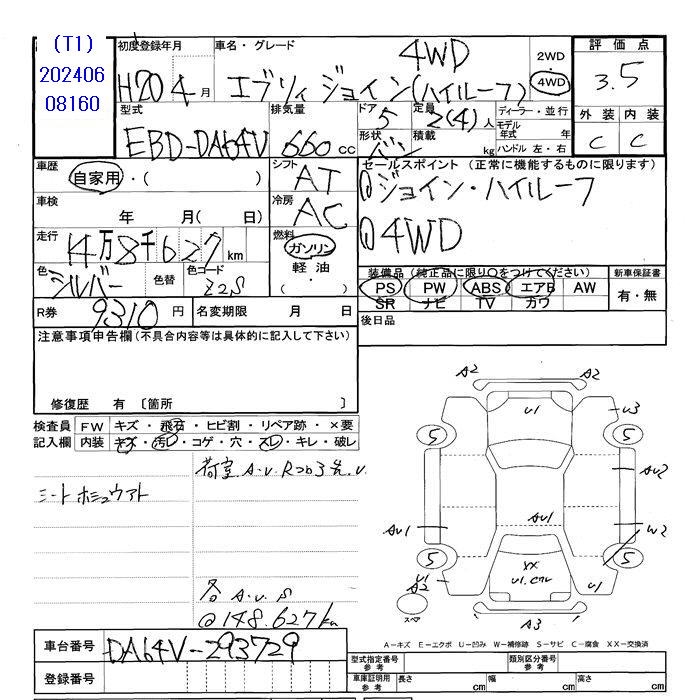 (T1)
202406
08160
初度登録年月 車名・グレード
H20 4月 エブリィ ジョイン(ハイルーフ) 4WD
2WD
・
4WD
評価点
3.5
型式 排気量 ドア 定員 ディーラー・並行
EBD-DA64V 660cc 5 2(4)人
モデル年式 年
形状 バン 積載 kg ハンドル 左・右
外装 内装
C C
車歴 自家用・( )
シフト AT
セールスポイント(正常に機能するものに限ります)
①ジョイン・ハイルーフ
②4WD
車検 年 月( 日)
冷房 AC
走行 14万8千627km
燃料 ガソリン
軽油
( ・ )
色 シルバー 色替 色コード Z2S
装備品(純正品に限り○をつけてください) 新車保証書
PS PW ABS エアB AW
SR ナビ TV カワ
有・無
R券 9310円 名変期限 月 日
後日品
注意事項申告欄(不具合内容等は具体的に記入して下さい)
修復歴 有 〔箇所
検査員 FW キズ・飛石・ヒビ割・リペア跡・×要
記入欄 内装 キズ・汚レ・コゲ・穴・スレ・キレ・破レ
荷室 A.U.
各 A.U.S
@148.627km
A2 A2
U1 U3
5 5
AU2
AU1 AU1 W2
5 5
U1
A2
XX
U1.
U1
スペア
A3
A−キズ E−エクボ U−凹み W−補修跡 S−サビ C−腐食 XX−交換済
車台番号 DA64V-293729
登録番号
型式指定番号
参考
類別区分番号
参考
車庫証明用
参考
長さ cm 幅 cm 高さ cm